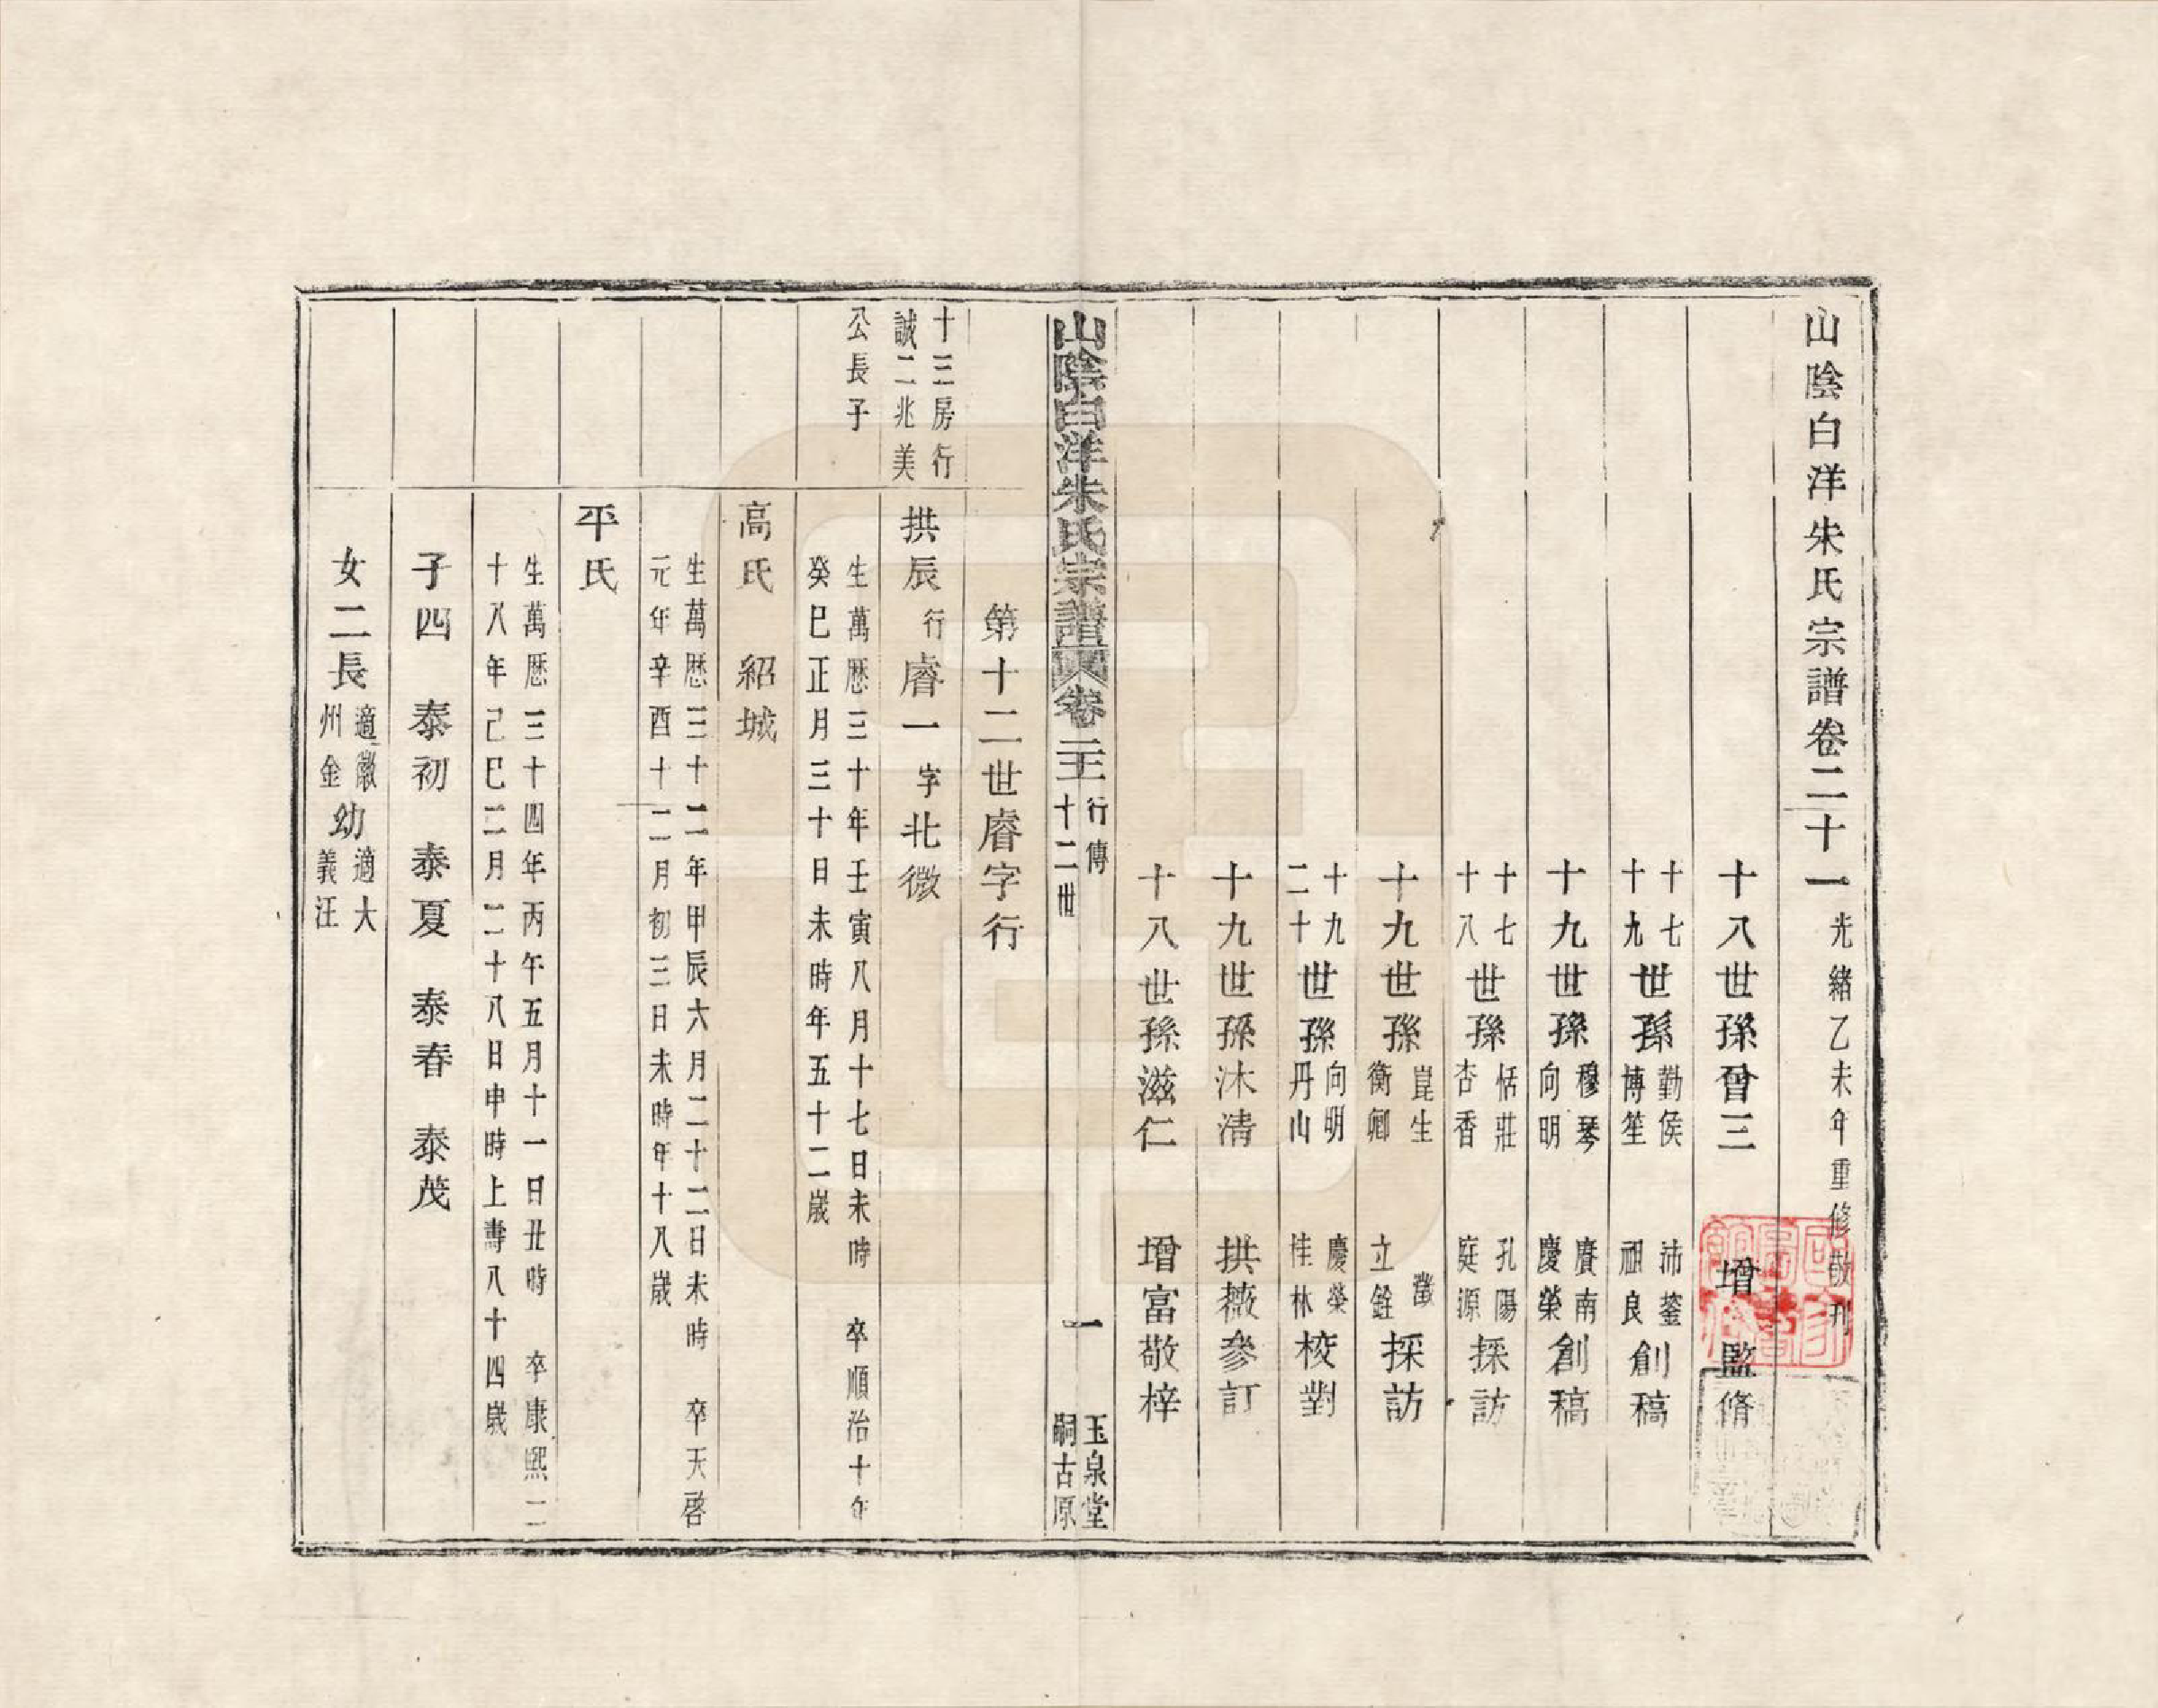 山陰白洋朱氏宗譜卷二十一 光緒乙未年重修敬刊
十八世孫曾三 增 監脩
十七十九世孫勤侯博笙 沛鋆祖良創稿
十九世孫穆琴向明 賡南慶榮創稿
十七十八世孫恬莊杏香 孔陽庭源採訪
十九世孫崑生衡卿 澂立銓採訪
十九二十世孫向明丹山 慶榮桂林校對
十九世孫沐清 拱薇參訂
十八世孫滋仁 增富敬梓
山陰白洋朱氏宗譜 卷二十一 行傳十二世 一 玉泉堂嗣古原
第十二世睿字行
十三房行誠二兆美公長子
拱辰行睿一字北微
生萬歷三十年壬寅八月十七日未時 卒順治十年
癸巳正月三十日未時年五十二歲
高氏 紹城
生萬歷三十二年甲辰六月二十二日未時 卒天啓
元年辛酉十二月初三日未時年十八歲
平氏
生萬歷三十四年丙午五月十一日丑時 卒康熙二
十八年己巳二月二十八日申時上壽八十四歲
子四 泰初 泰夏 泰春 泰茂
女二長適徽州金幼適大義汪